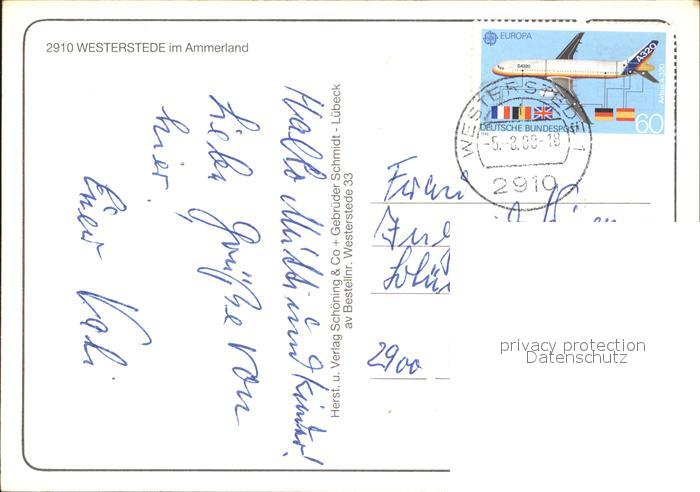 2910 WESTERSTEDE im Ammerland
Hallo Mutti und Kinder!
Liebe Grüße von
hier
Euer Vati
Herst. u. Verlag Schöning & Co + Gebrüder Schmidt - Lübeck
av Bestellnr. Westerstede 33
EUROPA
A320
Airbus A 320
DEUTSCHE BUNDESPOST
60
WESTERSTEDE 1
-5.-8.88-18
2910
Frau
2900
privacy protection
Datenschutz